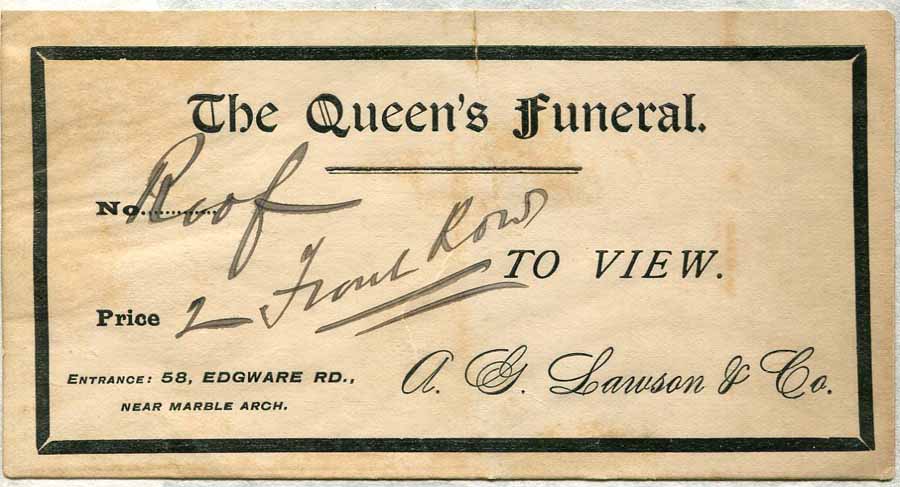 The Queen's Funeral.
No. Roof
2 Front Row
TO VIEW.
Price
ENTRANCE: 58, EDGWARE RD.,
NEAR MARBLE ARCH.
A. G. Lawson & Co.